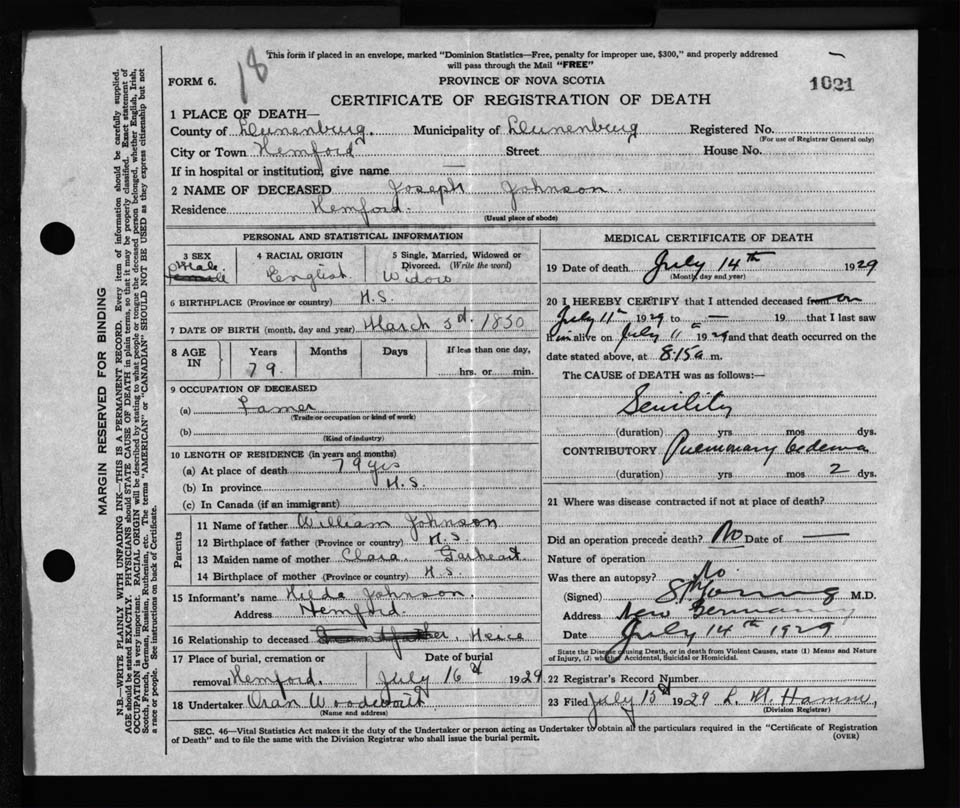 This form if placed in an envelope, marked "Dominion Statistics—Free, penalty for improper use, $300," and properly addressed
will pass through the Mail "FREE"
18
FORM 6.
PROVINCE OF NOVA SCOTIA
1021
CERTIFICATE OF REGISTRATION OF DEATH
1 PLACE OF DEATH—
County of Lunenburg. Municipality of Lunenburg Registered No.
(For use of Registrar General only)
City or Town Hemford Street House No.
If in hospital or institution, give name —
2 NAME OF DECEASED Joseph Johnson.
Residence Hemford.
(Usual place of abode)
PERSONAL AND STATISTICAL INFORMATION
3 SEX
Male
4 RACIAL ORIGIN
English.
5 Single, Married, Widowed or Divorced. (Write the word)
Widow
6 BIRTHPLACE (Province or country) N.S.
7 DATE OF BIRTH (month, day and year) March 3d. 1850
8 AGE IN
Years Months Days If less than one day,
79. hrs. or min.
9 OCCUPATION OF DECEASED
(a) Famer
(Trade or occupation or kind of work)
(b)
(Kind of industry)
10 LENGTH OF RESIDENCE (in years and months)
(a) At place of death 79 yrs
(b) In province N.S.
(c) In Canada (if an immigrant)
Parents
11 Name of father William Johnson
12 Birthplace of father (Province or country) N.S
13 Maiden name of mother Clara
14 Birthplace of mother (Province or country) N.S.
15 Informant's name Hilda Johnson.
Address Hemford.
16 Relationship to deceased Grandfather, Neice
17 Place of burial, cremation or Date of burial
removal Hemford. July 16 1929
18 Undertaker Oran Woodworth
(Name and address)
MEDICAL CERTIFICATE OF DEATH
19 Date of death July 14th 1929
(Month, day and year)
20 I HEREBY CERTIFY that I attended deceased from on
July 11th 1929 to — 19 that I last saw
him alive on July 11th 1929 and that death occurred on the
date stated above, at 8.15 a m.
The CAUSE OF DEATH was as follows:—
Senility
(duration) yrs mos dys.
CONTRIBUTORY Pulmonary Oedema
(duration) yrs mos 2 dys.
21 Where was disease contracted if not at place of death?
Did an operation precede death? No Date of —
Nature of operation
Was there an autopsy? No
(Signed) M.D.
Address New Germany
Date July 14th 1929
State the Disease causing Death, or in death from Violent Causes, state (1) Means and Nature
of Injury, (2) whether Accidental, Suicidal or Homicidal.
22 Registrar's Record Number
23 Filed July 15 1929
(Division Registrar)
SEC. 46—Vital Statistics Act makes it the duty of the Undertaker or person acting as Undertaker to obtain all the particulars required in the "Certificate of Registration
of Death" and to file the same with the Division Registrar who shall issue the burial permit.
(OVER)
MARGIN RESERVED FOR BINDING
N.B.—WRITE PLAINLY WITH UNFADING INK—THIS IS A PERMANENT RECORD. Every item of information should be carefully supplied.
AGE should be stated EXACTLY. PHYSICIANS should STATE CAUSE OF DEATH in plain terms, so that it may be properly classified. Exact statement of
OCCUPATION is very important. RACIAL ORIGIN will be described by stating to what people or tongue the deceased person belonged, whether English, Irish,
Scotch, French, German, Russian, Ruthenian, etc. The terms "AMERICAN" or "CANADIAN" SHOULD NOT BE USED as they express citizenship but not
a race or people. See instructions on back of Certificate.